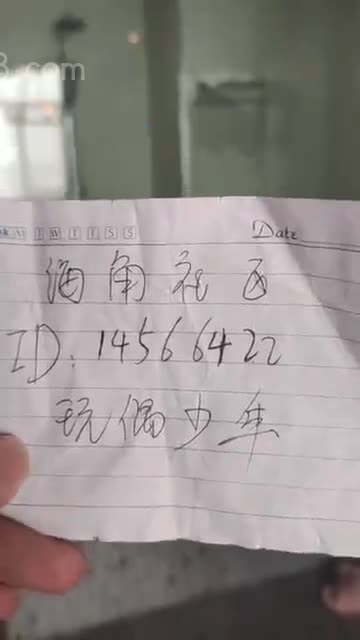 8.com
M T W T F S S Date
海角社区
ID: 14566422
玩偶少年